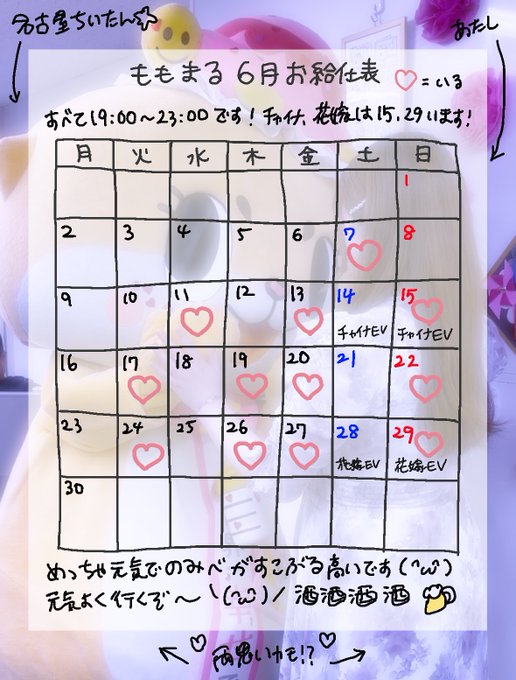 名古屋ちいたん☆
あたし
ももまる6月お給仕表
♡=いる
すべて19:00～23:00です!チャイナ、花嫁は15,29います!
月 火 水 木 金 土 日
1
2 3 4 5 6 7 8
9 10 11 12 13 14 15
チャイナEV チャイナEV
16 17 18 19 20 21 22
23 24 25 26 27 28 29
花嫁EV 花嫁EV
30
めっちゃ元気でのみべがすこぶる高いです(^ω^)
元気よく行くぞ～\(^ω^)/ 酒酒酒酒
両思いかも!?